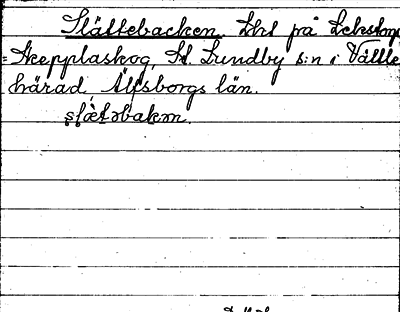 Slättebacken. Lht på Lekstorp
=Skepplaskog, St. Lundby s:n i Vättle
härad, Älfsborgs län.
slætəbakən.